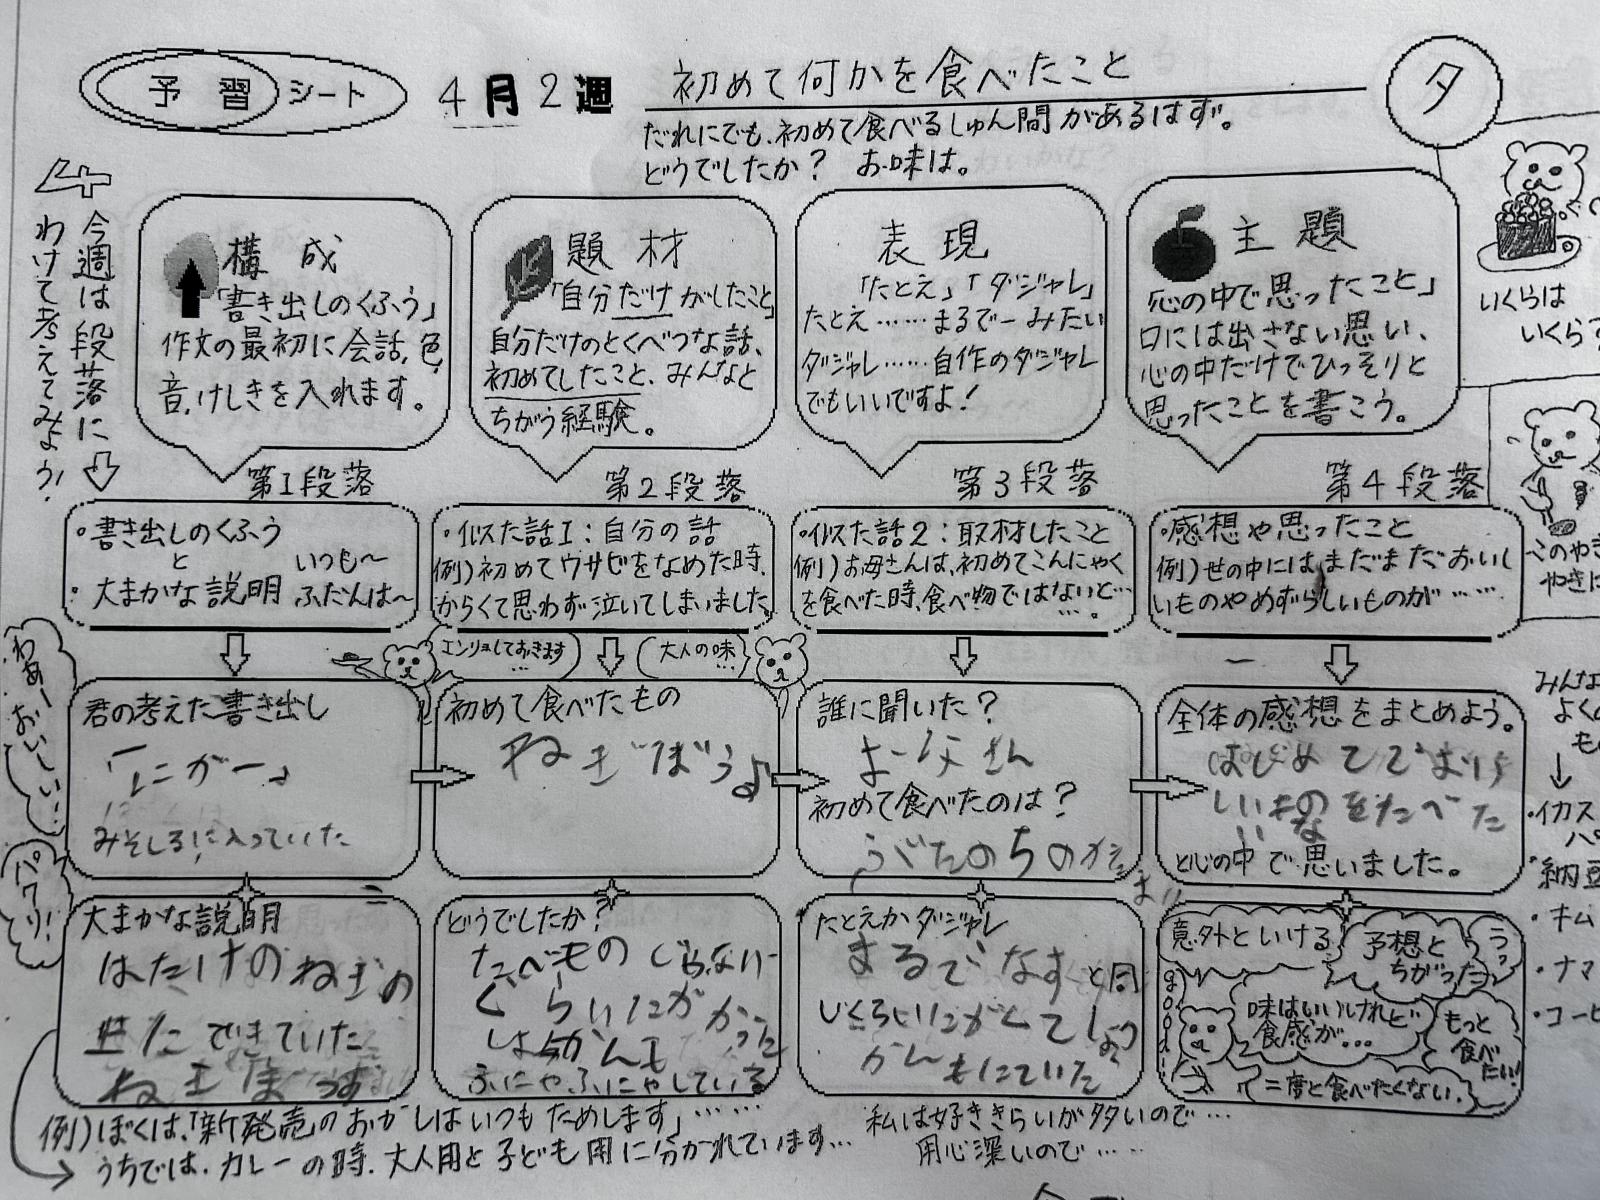 予習シート
4月2週
初めて何かを食べたこと
タ
だれにでも、初めて食べるしゅん間があるはず。
どうでしたか？ お味は。
今週は段落に
わけて考えてみよう！
構成
「書き出しのくふう」
作文の最初に会話、色、
音、けしきを入れます。
題材
「自分だけがしたこと」
自分だけのとくべつな話、
初めてしたこと、みんなと
ちがう経験。
表現
「たとえ」「ダジャレ」
たとえ……まるで―みたい
ダジャレ……自作のダジャレ
でもいいですよ！
主題
「心の中で思ったこと」
口には出さない思い、
心の中だけでひっそりと
思ったことを書こう。
いくらは
いくら
第1段落
・書き出しのくふう
と
・大まかな説明
いつも〜
ふだんは〜
第2段落
・似た話1：自分の話
例）初めてワサビをなめた時、
からくて思わず泣いてしまいました。
第3段落
・似た話2：取材したこと
例）お母さんは、初めてこんにゃく
を食べた時、食べ物ではないと…
…。
第4段落
・感想や思ったこと
例）世の中には、まだまだおいし
いものやめずらしいものが……
このやき
やきに
わあーおいしい…
パクリ！
エンリョしておきます…
大人の味…
君の考えた書き出し
「にがー」
みそしるに入っていた
初めて食べたもの
ねぎぼうず
誰に聞いた？
お父さん
初めて食べたのは？
全体の感想をまとめよう。
と心の中で思いました。
大まかな説明
はたけのねぎの
上にできていた
ねぎぼうず
どうでしたか？
たべもの じゃない
くらいにがかった
しょっかんも
ふにゃふにゃしている
たとえかダジャレ
まるでなすと同
じくらいにがくてしょっ
かんもにていた
意外といける
予想と
ちがった
うっ
good!
味はいいけれど
食感が…
もっと
食べ
たい！
二度と食べたくない。
例）ぼくは、「新発売」のおかしはいつもためします」……
うちでは、カレーの時、大人用と子ども用に分かれています…
私は好ききらいが多いので…
用心深いので……
みんな
よく
も
・イカス
パ
・納豆
・キム
・ナマ
・コーヒ